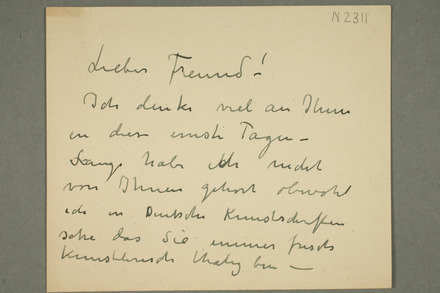 N 2311
Lieber Freund!
Ich denke viel an Ihnen
in dieser ernste Tagen –
Lange habe ich nicht
von Ihnen gehört obwohl
ich in Deutsche Kunstschriften
sehe das Sie immer frisch
künstlerisch thätig